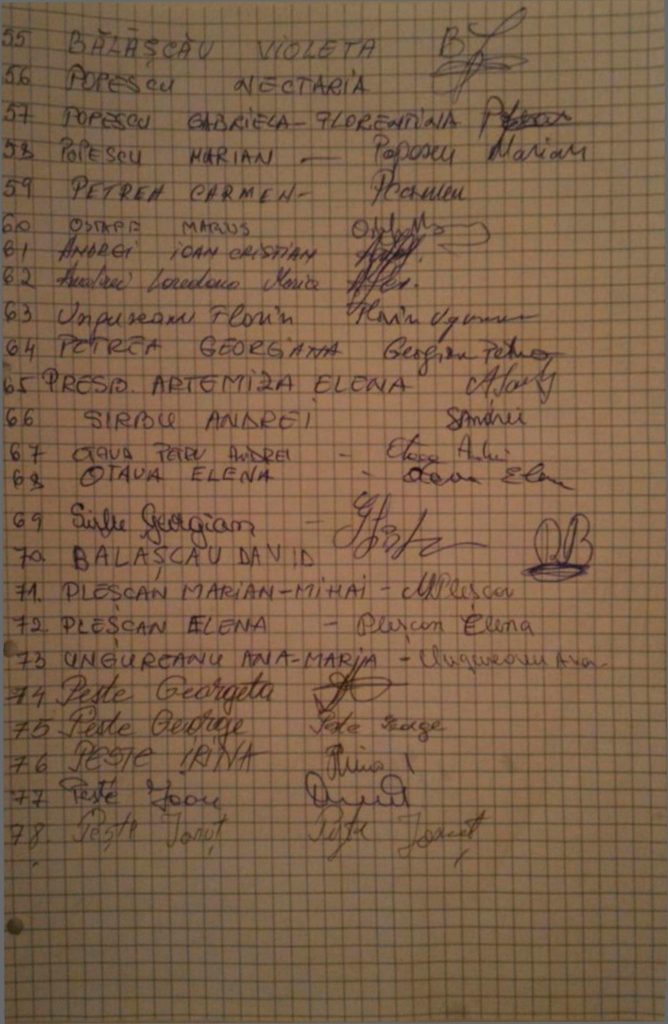 55 BĂLĂȘCĂU VIOLETA B
56 POPESCU NECTARIA
57 POPESCU GABRIELA-FLORENTINA
58 POPESCU MARIAN — Popescu Marian
59 PETREA CARMEN- PCarmen
60 OSTAPE MARIUS
61 ANDREI IOAN CRISTIAN
62 Loredana Maria
63 Ungureanu Florin Florin
64 PETREA GEORGIANA Georgiana Petrea
65 PRESB. ARTEMIZA ELENA
66 SIRBU ANDREI SAndrei
67 OTAVA PETRU ANDREI -
68 OTAVA ELENA - Otava Elena
69 Sirbu Georgian -
70 BALAȘCĂU DAVID DB
71. PLEȘCAN MARIAN-MIHAI - MPleșcan
72 PLEȘCAN ELENA - Pleșcan Elena
73 UNGUREANU ANA-MARIA - Ungureanu Ana-
74 Peste Georgeta
75 Peste George Peste George
76 PESTE IRINA Irina
77 Peste Ioan
78. Peste Ionuț Peste Ionuț